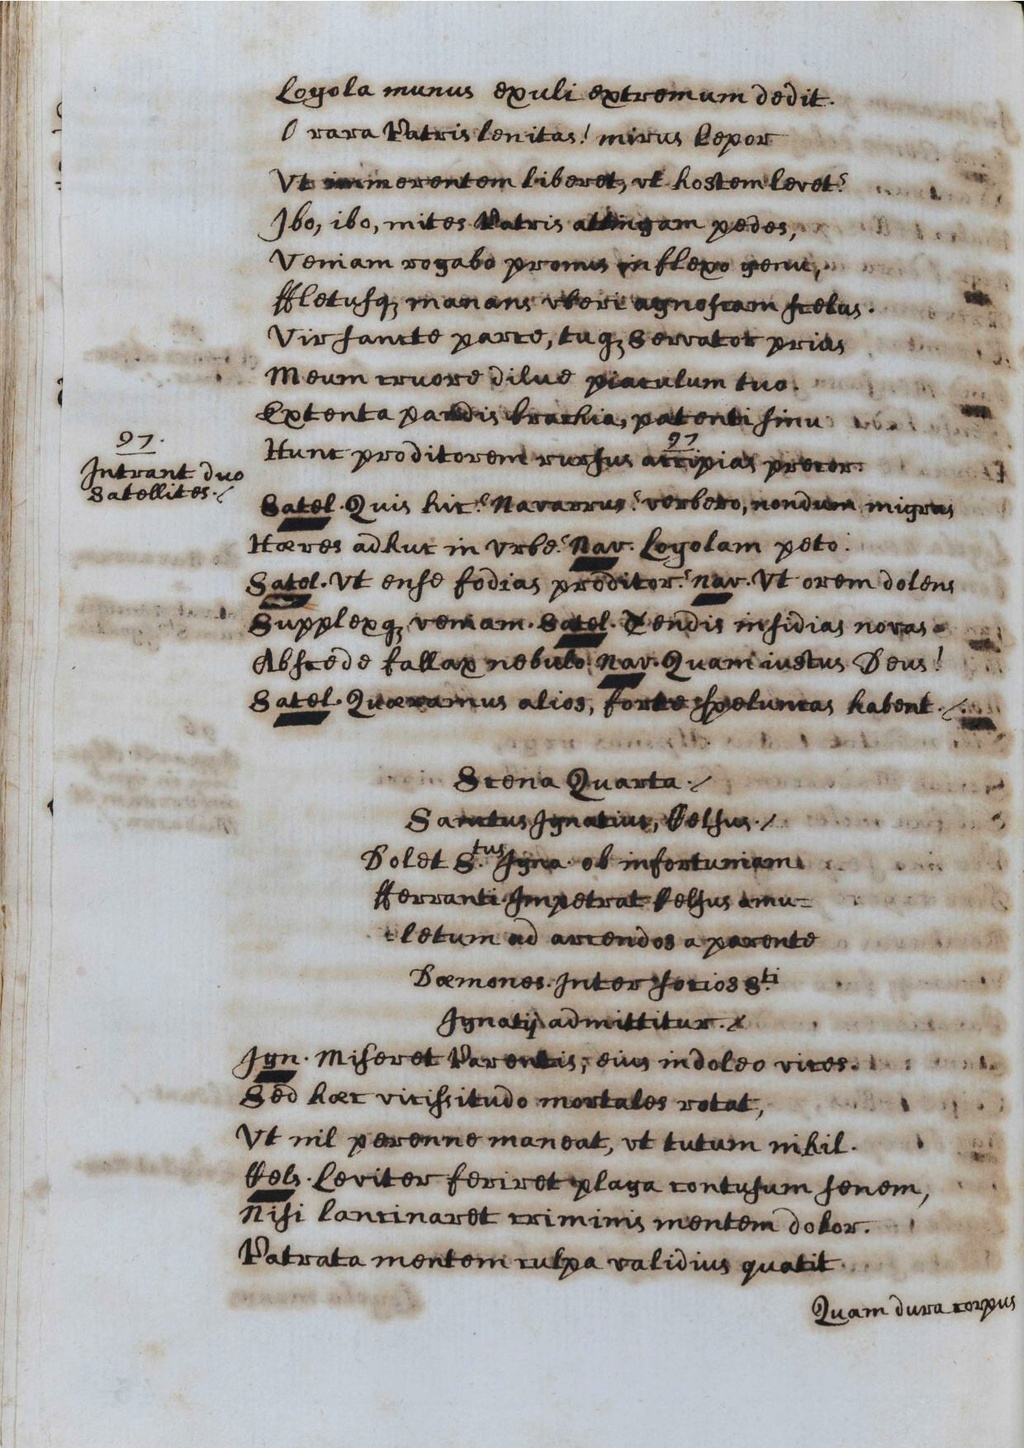 Loyola munus exuli extremum dedit.
O rara Patris lenitas! mirus lepor
Vt immerentem liberet, vt hostem levet?
Ibo, ibo, mites Patris attingam pedes,
Veniam rogabo pronus inflexo genu,
Fletusq, manans vberi agnoscam scelus.
Vir sancte parce, tuq, Servator prius
Meum cruore dilue piaculum tuo.
Extenta pandis brachia, patenti sinu
97
Hunc proditorem rursus accipias precor.
97.
Intrant duo
Satellites./
Satel. Quis hic? Navarrus? verbero, nondum migras
Hæres adhuc in Vrbe? Nav. Loyolam peto.
Satel. Vt ense fodias proditor? Nav. Vt orem dolens
Supplexq, veniam. Satel. Tendis insidias novas
Abscede fallax nebulo. Nav. Quam iustus Deus!
Satel. Quæramus alios, forte speluncas habent./
Scena Quarta./
Sanctus Ignatius, Celsus./
Dolet S.tus Igna. ob infortunium
Ferranti. Impetrat Celsus amu=
letum ad arcendos a parente
Dæmones. Inter socios S.ti
Ignatij admittitur./
Ign. Miseret Parentis, eius indoleo vices.
Sed hæc vicissitudo mortales rotat,
Vt nil perenne maneat, vt tutum nihil.
Cels. Leviter feriret plaga contusum senem,
Nisi lancinaret criminis mentem dolor.
Patrata mentem culpa validius quatit
Quam dura corpus